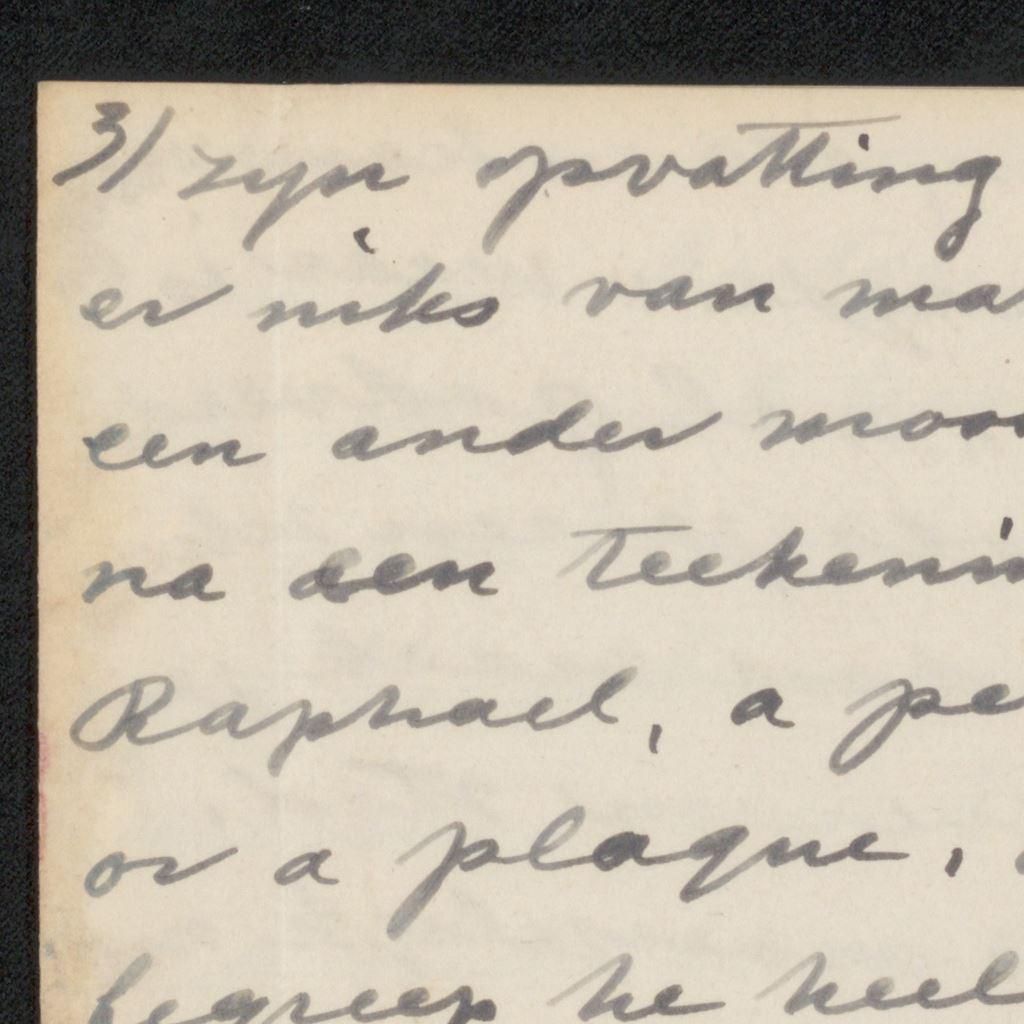 3/ zyn opvatting
er niks van ma
een ander moo
na een teekenin
Raphael, a pe
or a plaque,
begreep he heel